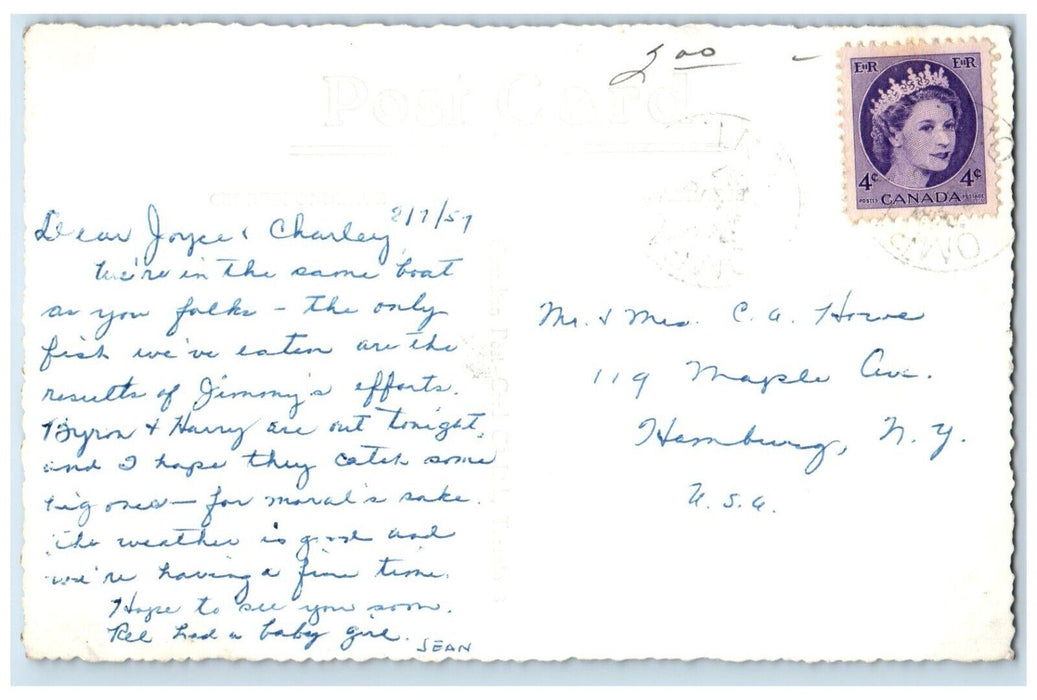 2.00 -
Post Card
E II R E II R
4¢ 4¢
POSTES CANADA POSTAGE
Dear Joyce & Charley 8/7/57
We're in the same boat
as you folks - the only
fish we've eaten are the
results of Jimmy's efforts.
Byron & Harry are out tonight,
and I hope they catch some
big ones - for moral's sake.
The weather is good and
we're having a fine time.
Hope to see you soon.
had a baby girl.
JEAN
Mr. & Mrs. C. A. Howe
119 Maple Ave.
Hamburg, N. Y.
U. S. A.